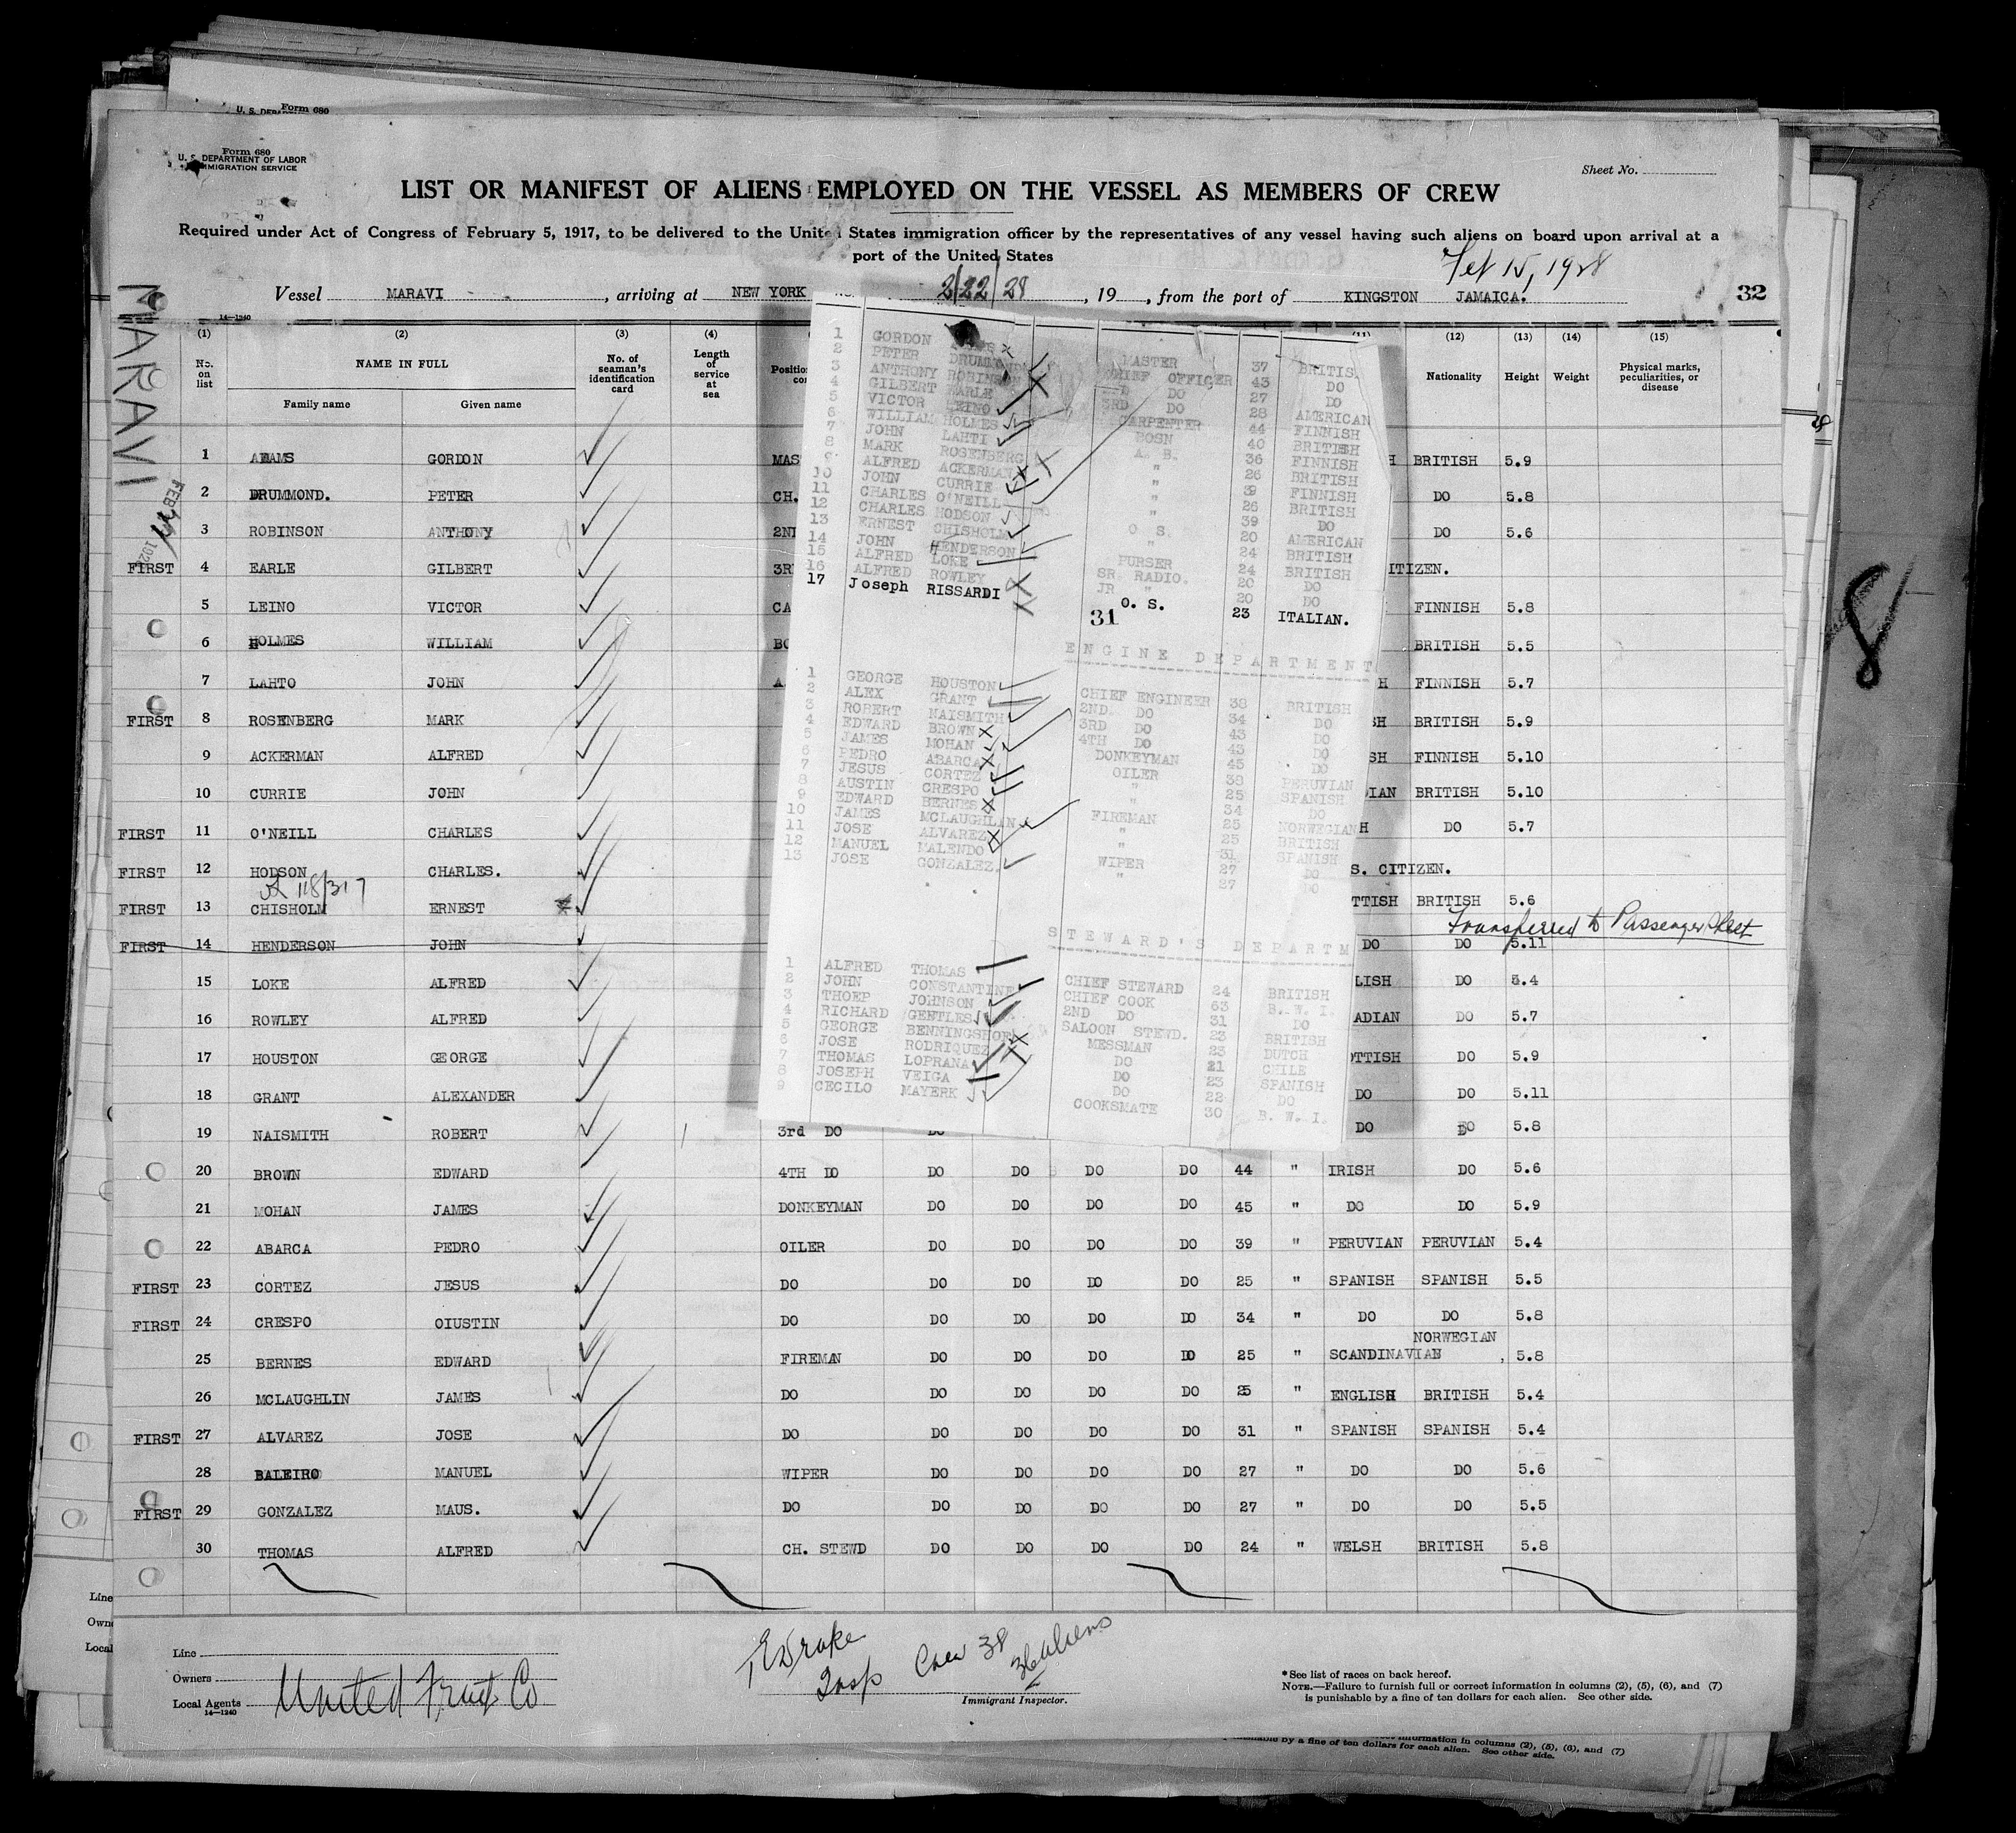 U. S. DEPA Form 680
Form 680
U. S. DEPARTMENT OF LABOR
IMMIGRATION SERVICE
Sheet No.
LIST OR MANIFEST OF ALIENS EMPLOYED ON THE VESSEL AS MEMBERS OF CREW
Required under Act of Congress of February 5, 1917, to be delivered to the United States immigration officer by the representatives of any vessel having such aliens on board upon arrival at a
port of the United States
Feb 15, 1928
Vessel MARAVI , arriving at NEW YORK 2/22/28 , 19 , from the port of KINGSTON JAMAICA.
32
14—1240
MARAVI
(1) (2) (3) (4) (11) (12) (13) (14) (15)
No. on list NAME IN FULL No. of seaman's identification card Length of service at sea Nationality Height Weight Physical marks, peculiarities, or disease
Family name Given name
1 ADAMS GORDON MAS BRITISH 5.9
2 DRUMMOND. PETER CH. DO 5.8
3 ROBINSON ANTHONY 2N DO 5.6
FIRST 4 EARLE GILBERT 3R ITIZEN.
5 LEINO VICTOR CA FINNISH 5.8
6 HOLMES WILLIAM BO BRITISH 5.5
7 LAHTO JOHN A. H FINNISH 5.7
FIRST 8 ROSENBERG MARK SH BRITISH 5.9
9 ACKERMAN ALFRED SH FINNISH 5.10
10 CURRIE JOHN DIAN BRITISH 5.10
FIRST 11 O'NEILL CHARLES H DO 5.7
FIRST 12 HODSON CHARLES. S. CITIZEN.
118/317
FIRST 13 CHISHOLM ERNEST TTISH BRITISH 5.6
Transferred to Passenger Sheet
FIRST 14 HENDERSON JOHN DO DO 5.11
15 LOKE ALFRED LISH DO 5.4
16 ROWLEY ALFRED ADIAN DO 5.7
17 HOUSTON GEORGE OTTISH DO 5.9
18 GRANT ALEXANDER DO DO 5.11
19 NAISMITH ROBERT 3rd DO DO DO DO 5.8
20 BROWN EDWARD 4TH DO DO DO DO DO 44 " IRISH DO 5.6
21 MOHAN JAMES DONKEYMAN DO DO DO DO 45 " DO DO 5.9
22 ABARCA PEDRO OILER DO DO DO DO 39 " PERUVIAN PERUVIAN 5.4
FIRST 23 CORTEZ JESUS DO DO DO DO DO 25 " SPANISH SPANISH 5.5
FIRST 24 CRESPO OIUSTIN DO DO DO DO DO 34 " DO DO 5.8
NORWEGIAN
25 BERNES EDWARD FIREMAN DO DO DO DO 25 " SCANDINAVIAN , 5.8
26 MCLAUGHLIN JAMES DO DO DO DO DO 25 " ENGLISH BRITISH 5.4
FIRST 27 ALVAREZ JOSE DO DO DO DO DO 31 " SPANISH SPANISH 5.4
28 BALEIRO MANUEL WIPER DO DO DO DO 27 " DO DO 5.6
FIRST 29 GONZALEZ MAUS. DO DO DO DO DO 27 " DO DO 5.5
30 THOMAS ALFRED CH. STEWD DO DO DO DO 24 " WELSH BRITISH 5.8
1 GORDON MASTER 37 BRITIS
2 PETER DRUMMOND CHIEF OFFICER 43 DO
3 ANTHONY ROBINSON 2ND DO 27 DO
4 GILBERT EARLE 3RD DO 28 AMERICAN
5 VICTOR LEINO CARPENTER 44 FINNISH
6 WILLIAM HOLMES BOSN 40 BRITISH
7 JOHN LAHTI A. B. 36 FINNISH
8 MARK ROSENBERG " 26 BRITISH
9 ALFRED ACKERMAN " 39 FINNISH
10 JOHN CURRIE " 26 BRITISH
11 CHARLES O'NEILL " 39 DO
12 CHARLES HODSON O S. 20 AMERICAN
13 ERNEST CHISHOLM " 24 BRITISH
14 JOHN HENDERSON PURSER 24 BRITISH
15 ALFRED LOKE SR. RADIO. 20 DO
16 ALFRED ROWLEY JR " 20 DO
17 Joseph RISSARDI O. S. 23 ITALIAN.
31
ENGINE DEPARTMENT
1 GEORGE HOUSTON CHIEF ENGINEER 38 BRITISH
2 ALEX GRANT 2ND. DO 34 DO
3 ROBERT NAISMITH 3RD DO 43 DO
4 EDWARD BROWN 4TH DO 43 DO
5 JAMES MOHAN DONKEYMAN 45 DO
6 PEDRO ABARCA OILER 38 PERUVIAN
7 JESUS CORTEZ " 25 SPANISH
8 AUSTIN CRESPO " 34 DO
9 EDWARD BERNES FIREMAN 25 NORWEGIAN
10 JAMES MCLAUGHLIN " 25 BRITISH
11 JOSE ALVAREZ " 31 SPANISH
12 MANUEL MALENDO WIPER 27 DO
13 JOSE GONZALEZ. " 27 DO
STEWARD'S DEPARTM
1 ALFRED THOMAS CHIEF STEWARD 24 BRITISH
2 JOHN CONSTANTINE CHIEF COOK 63 B. W. I.
3 THOEP JOHNSON 2ND DO 31 DO
4 RICHARD GENTLES SALOON STEWD. 23 BRITISH
5 GEORGE BENNINGSHOF MESSMAN 23 DUTCH
6 JOSE RODRIQUEZ DO 21 CHILE
7 THOMAS LOPRANA DO 23 SPANISH
8 JOSEPH VEIGA DO 22 DO
9 CECILO MAYERK COOKSMATE 30 B. W. I.
8
Line
Owners
Local Agents United Fruit Co
14—1240
Drake
Insp Crew 38
36 aliens
Immigrant Inspector.
*See list of races on back hereof.
NOTE.—Failure to furnish full or correct information in columns (2), (5), (6), and (7)
is punishable by a fine of ten dollars for each alien. See other side.
Line
Own
Local
information in columns (2), (5), (6), and (7)
by a fine of ten dollars for each alien. See other side.